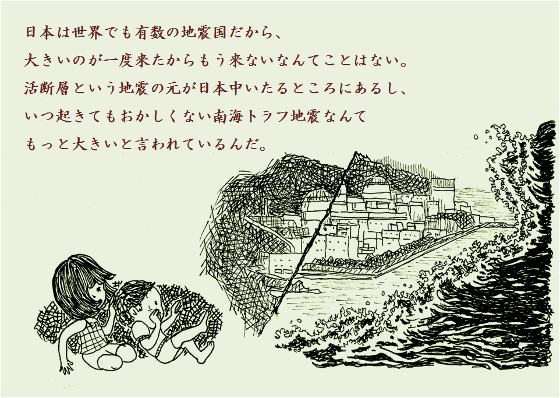 日本は世界でも有数の地震国だから、
大きいのが一度来たからもう来ないなんてことはない。
活断層という地震の元が日本中いたるところにあるし、
いつ起きてもおかしくない南海トラフ地震なんて
もっと大きいと言われているんだ。